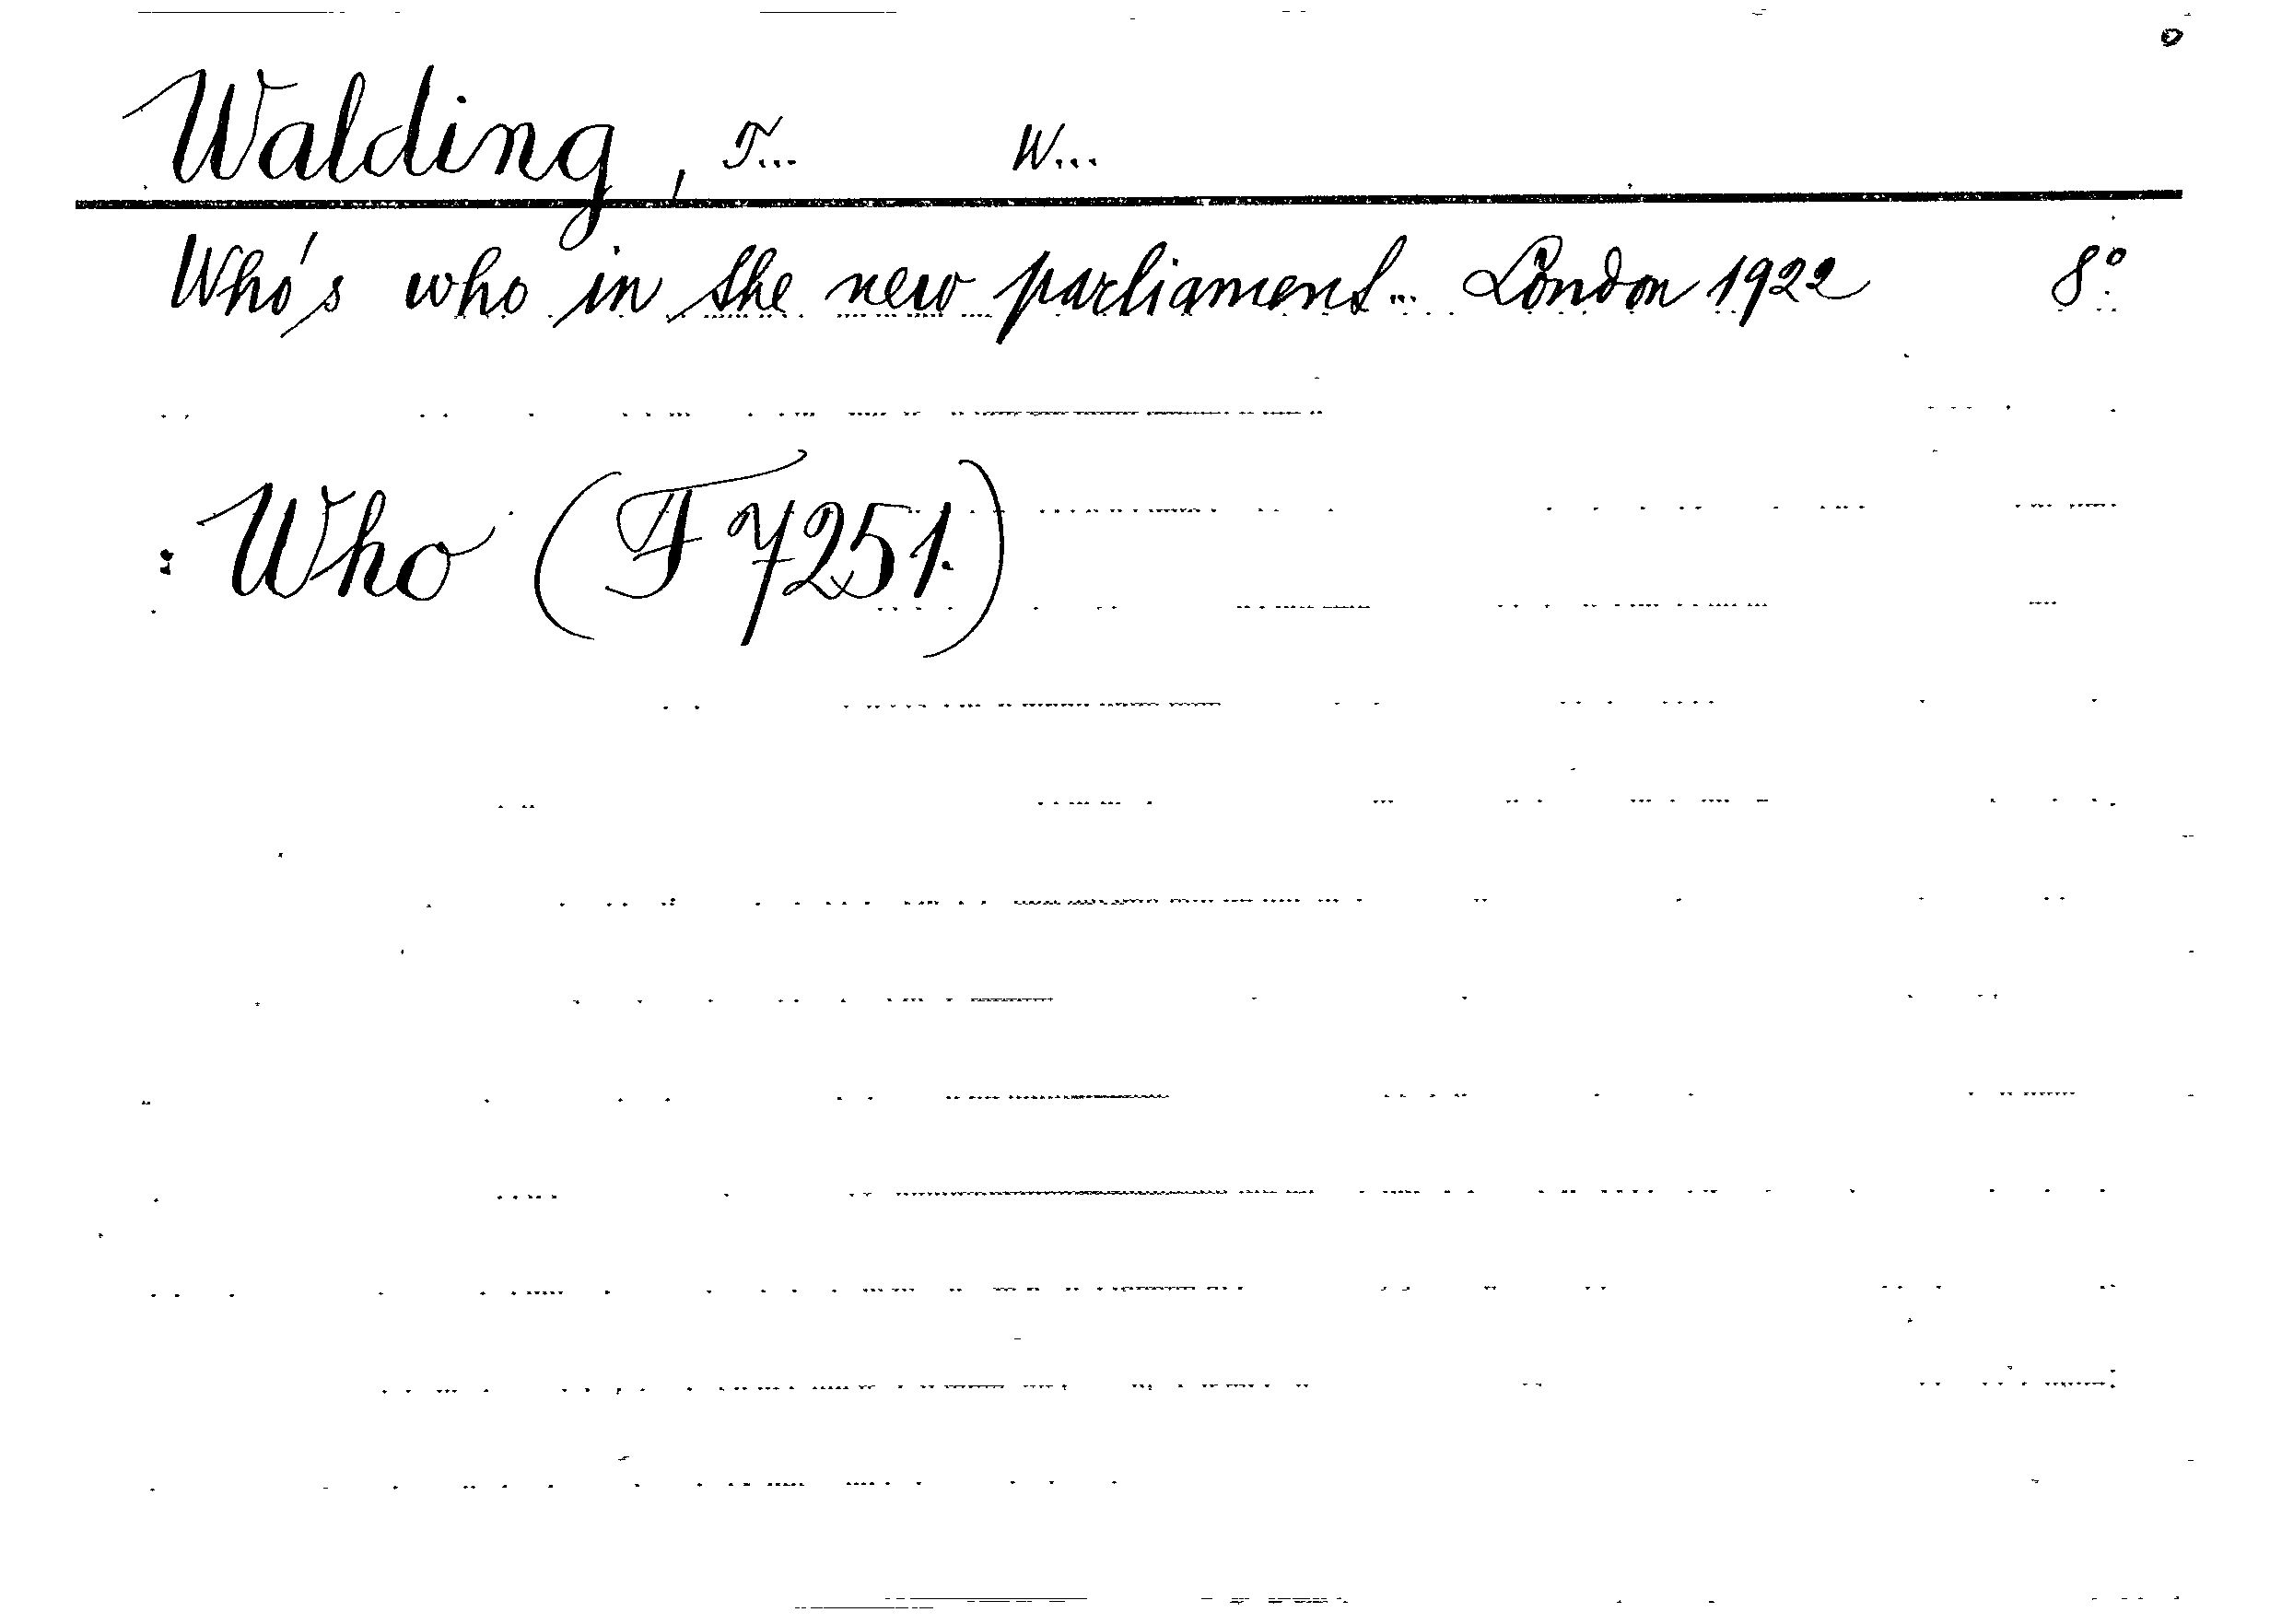 Walding, T... W...
Who's who in the new parliament... London 1922 8°
: Who (F 7251.)